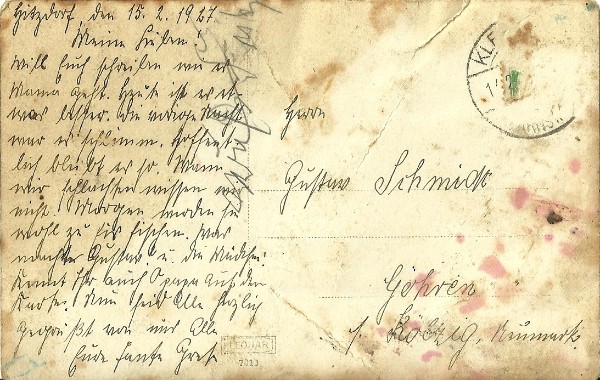 Hitzdorf, den 15. 2. 1927.
Meine Lieben!
Will Euch schreiben wie es
Mama geht. Heute ist es et-
was besser. die vorige Nacht
war es schlimm. Hoffent-
lich bleibt es so. Wann
wir schlachten wissen wir
nicht. Morgen werden sie
wohl zu Eis fischen. Was
macht Gustav u. die Mädchen?
Kennt Ihr auch Opapa auf der
Karte. Nun seid Alle herzlich
gegrüßt von uns Alle
Eure Tante Grete
Herrn
Gustav Schmidt
Göhren
b. Költzig, Neumark
KL
LEOJAR
7023